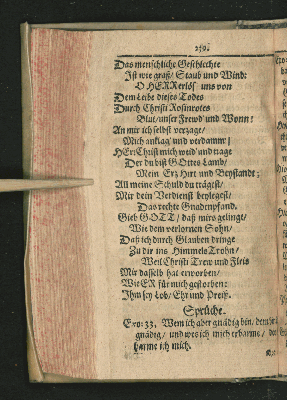 250.
Das menschliche Geschlechte
Ist wie graß/ Staub und Wind:
O HERR erlöß uns von
Dem Leibe dieses Todes
Durch Christi Rosinrotes
Blut/ unser Frewd und Wonn!
An mir ich selbst verzage/
Mich anklag und verdamm;
HErr Christ mich weid und trage
Der du bist GOttes Lamb/
Mein Ertz Hirt und Beystandt;
All meine Schuld du trägest/
Mir dein Verdienst beylegest/
Das rechte Gnadenpfand.
Gieb GOTT/ daß mirs gelingt/
Wie dem verlornen Sohn/
Daß ich durch Glauben dringe
Zu dir ins Himmels Trohn/
Weil Christi Trew und Fleis
Mir dasselb hat erworben/
Wie ER für mich gestorben:
Ihm sey Lob/ Ehr und Preiß.
Sprüche.
Exo: 33. Wem ich aber gnädig bin, dem bin
gnädig/ und wes ich mich erbarme/ des
barme ich mich.